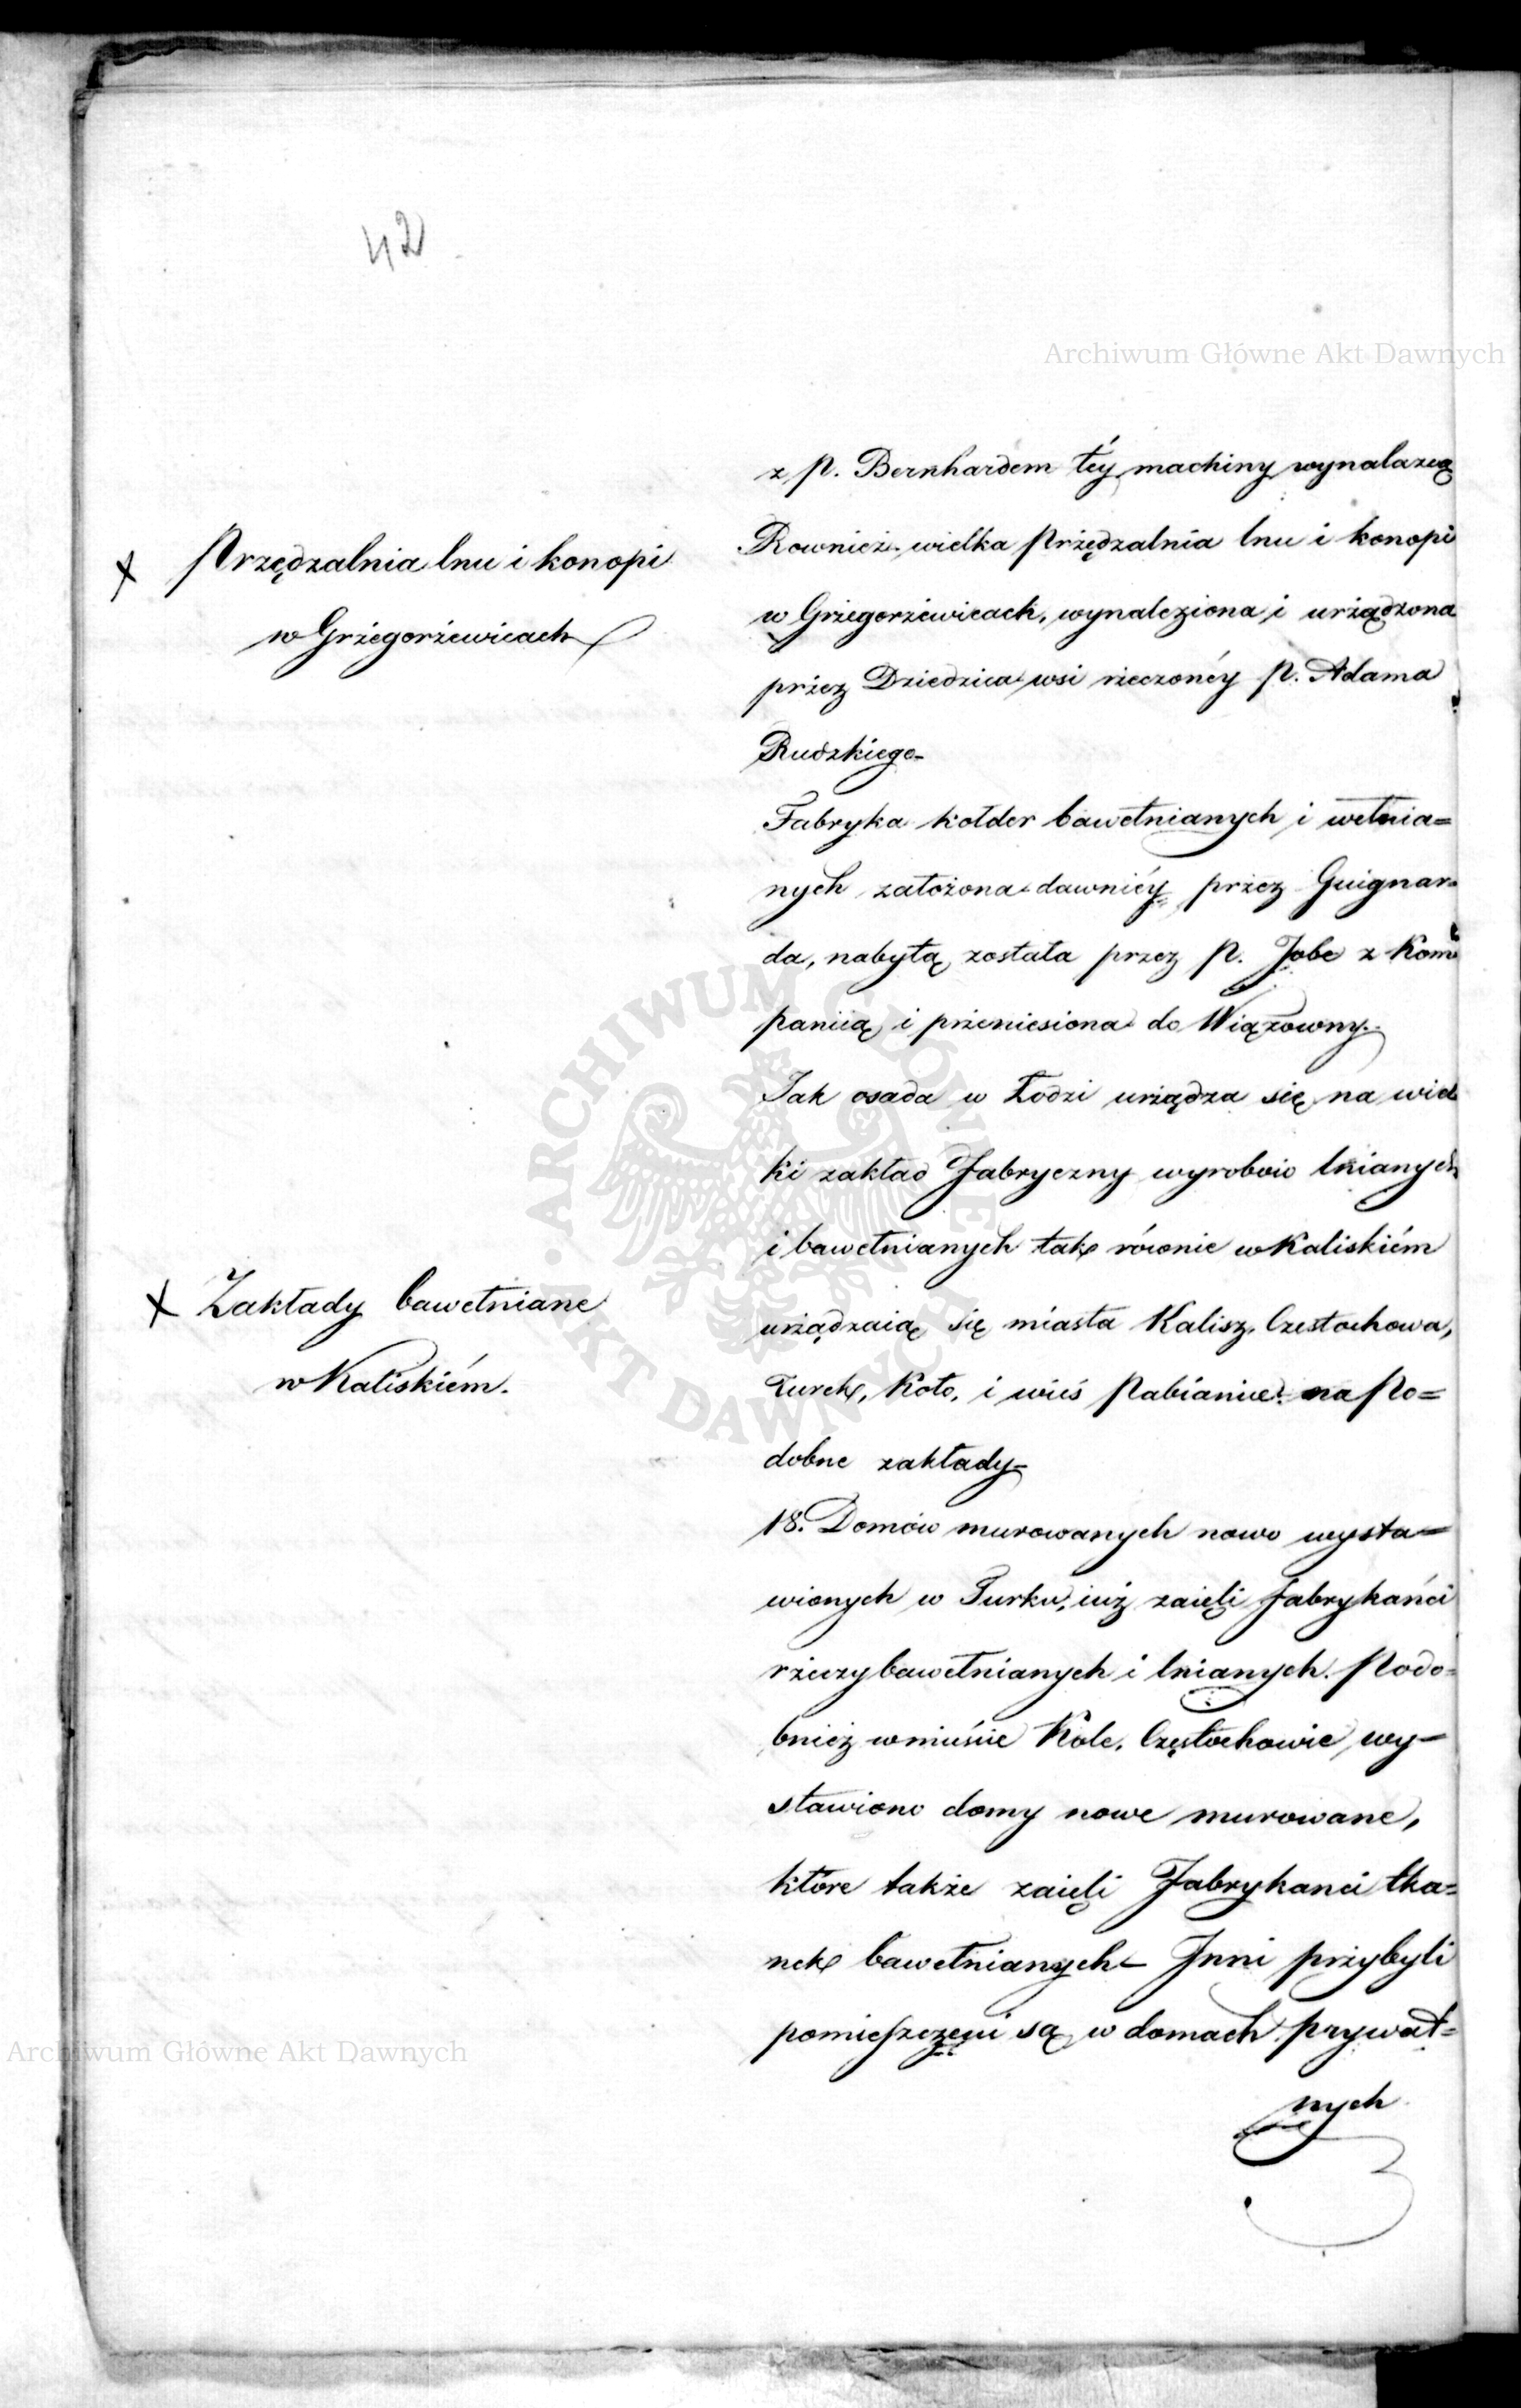 42
Archiwum Główne Akt Dawnych
z P. Bernhardem téy machiny wynalazcą
Rownież wielka Przędzalnia lnu i konopi
w Grzegorzewicach, wynaleziona i urządzona
przez Dziedzica wsi rzeczonéy P. Adama
Rudzkiego-
Fabryka kołder bawełnianych i wełnia=
nych założona dawniéy przez Guignar=
da, nabytą została przez P. Jobe z Kom
paniią i przeniesiona do Wiązowny.
Jak osada w Łodzi urządza się na wiel
ki zakład Fabryczny wyrobów lnianych
i bawełnianych tak równie w Kaliskiém
urządzaią się miasta Kalisz, Czestochowa,
Turek, Koło, i wieś Pabianice na Po=
dobne zakłady-
18. Domów murowanych nowo wysta=
wionych w Turku, iuż zaięli fabrykańci
rzeczy bawełnianych i lnianych. Podo=
bnież w mieście Kole, Częstochowie wy=
stawiono domy nowe murowane,
które także zaięli Fabrykanci tka=
nek bawełnianych- Inni przybyli
pomieszczęni są w domach prywat=
nych
X Przędzalnia lnu i konopi
w Grzegorzewicach
X Zakłady bawełniane
w Kaliskiém.
ARCHIWUM GŁÓWNE AKT DAWNYCH
Archiwum Główne Akt Dawnych